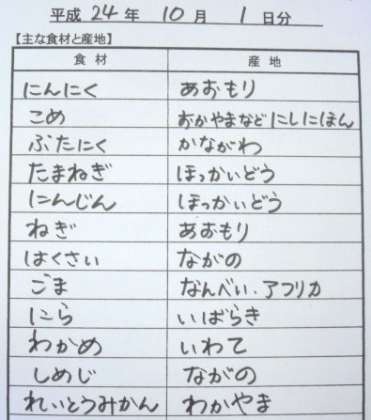 平成 24 年 10 月 1 日分
【主な食材と産地】
食材 産地
にんにく あおもり
こめ おかやまなどにしにほん
ぶたにく かながわ
たまねぎ ほっかいどう
にんじん ほっかいどう
ねぎ あおもり
はくさい ながの
ごま なんべい、アフリカ
にら いばらき
わかめ いわて
しめじ ながの
れいとうみかん わかやま